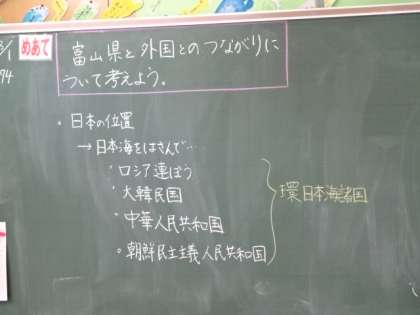 めあて
富山県と外国とのつながりに
ついて考えよう。
・日本の位置
→日本海をはさんで…
・ロシア連ぽう
・大韓民国
・中華人民共和国
・朝鮮民主主義人民共和国
環日本海諸国
/1
94